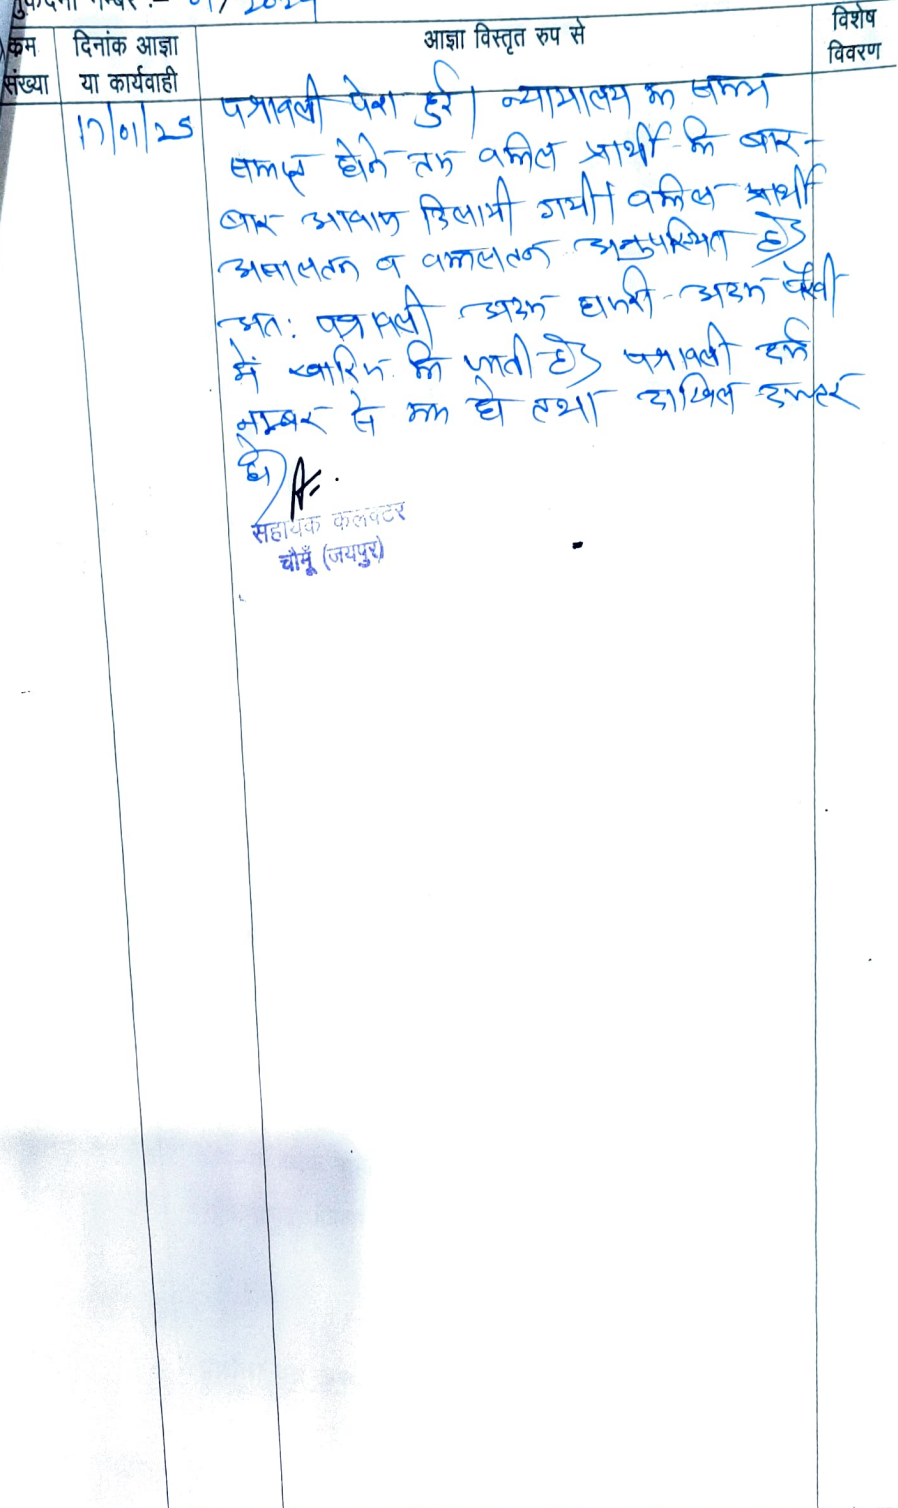 मुकदमा नम्बर :- 01/2024
क्रम संख्या
दिनांक आज्ञा या कार्यवाही
आज्ञा विस्तृत रुप से
विशेष विवरण
17/01/25
पत्रावली पेश हुई। न्यायालय का समय
समाप्त होने तक वकिल प्रार्थी कि बार-
बार आवाज दिलायी गयी। वकिल प्रार्थी
असालतन व वकालतन अनुपस्थित है।
अतः पत्रावली अदम हाजरी अदम पैरवी
में खारिज कि जाती है। पत्रावली दर्ज
नम्बर से कम हो तथा दाखिल दफ्तर
हो।
सहायक कलक्टर
चौमूँ (जयपुर)